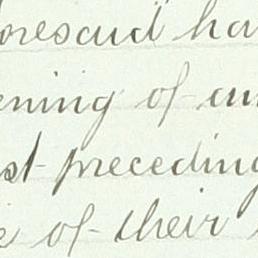 oresaid ha
ening of an
st preceding
e of their